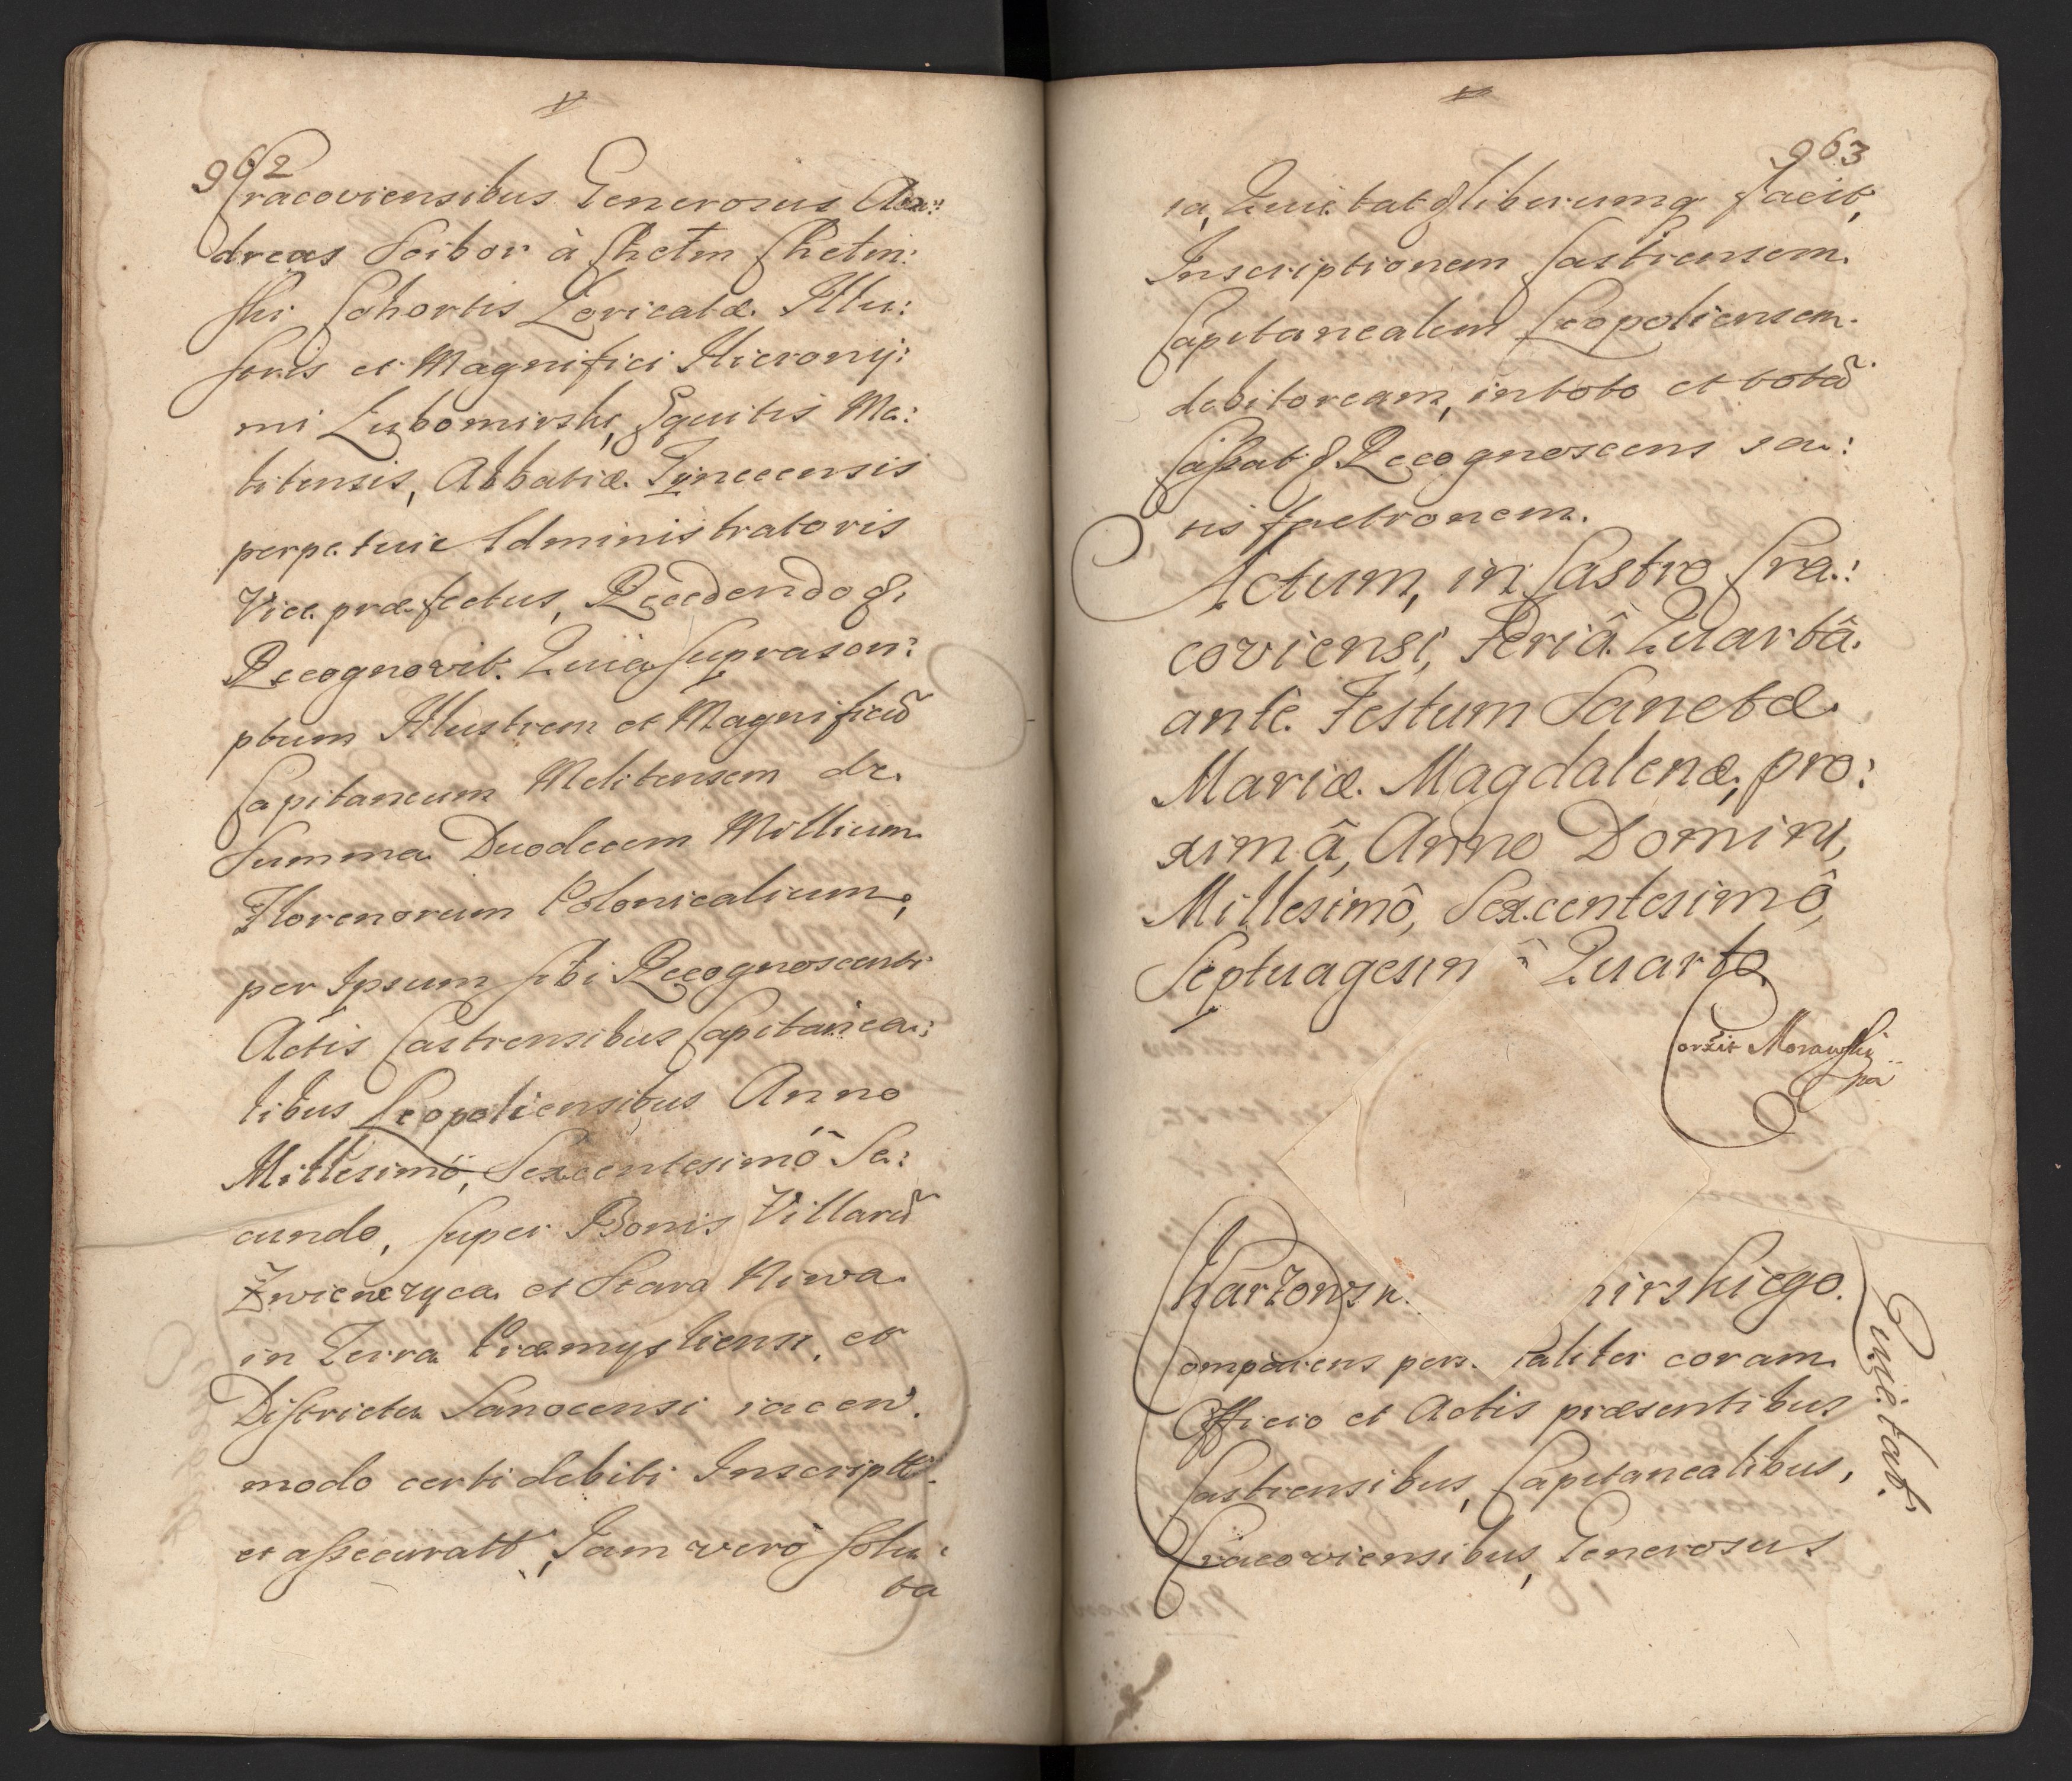 962
Cracoviensibus Generosus An:
dreas Scibor à Chełm Chełm:
ski Cohortis Loricatæ Illu:
stris et Magnifici Hierony:
mi Lubomirski, Equitis Me:
litensis, Abbatiæ Tynecensis
perpetui Administratoris
Vice præfectus, Recedendo &
Recognovit. Quia suprascri:
ptum Illustrem et Magnificũ
Capitaneum Melitensem de
Summa Duodecem Millium
Florenorum Polonicalium,
per Ipsum sibi Recognoscenti
Actis Castrensibus Capitanea:
libus Leopoliensibus Anno
Millesimô, Sexcentesimô Se:
cundo, super Bonis Villarũ
Zwienczyca et Stara Niwa
in Terra Præmysliensi, et
Districtu Sanocensi iacen.
modo certi debiti Inscriptt.
et assecuratt, Iam verò solu:
ta
963
ta, Quietat & liberumq facit,
Inscriptionem Castrensem
Capitanealem Leopoliensem
debitoream, in toto et totã
Cassat & Recognoscens sa:
tisfactionem.
Actum, in Castro Cra:
coviensi, Feriâ Quartâ
ante Festum Sanctæ
Mariæ Magdalenæ, pro:
ximâ, Anno Domini,
Millesimô, Sexcentesimô,
Septuagesim ô Quarto
Corrit Morawski
mp
Charzowsk nirskiego.
Quietat.
Comparens pers aliter coram
Officio et Actis præsentibus
Castrensibus, Capitanealibus,
Cracoviensibus, Generosus